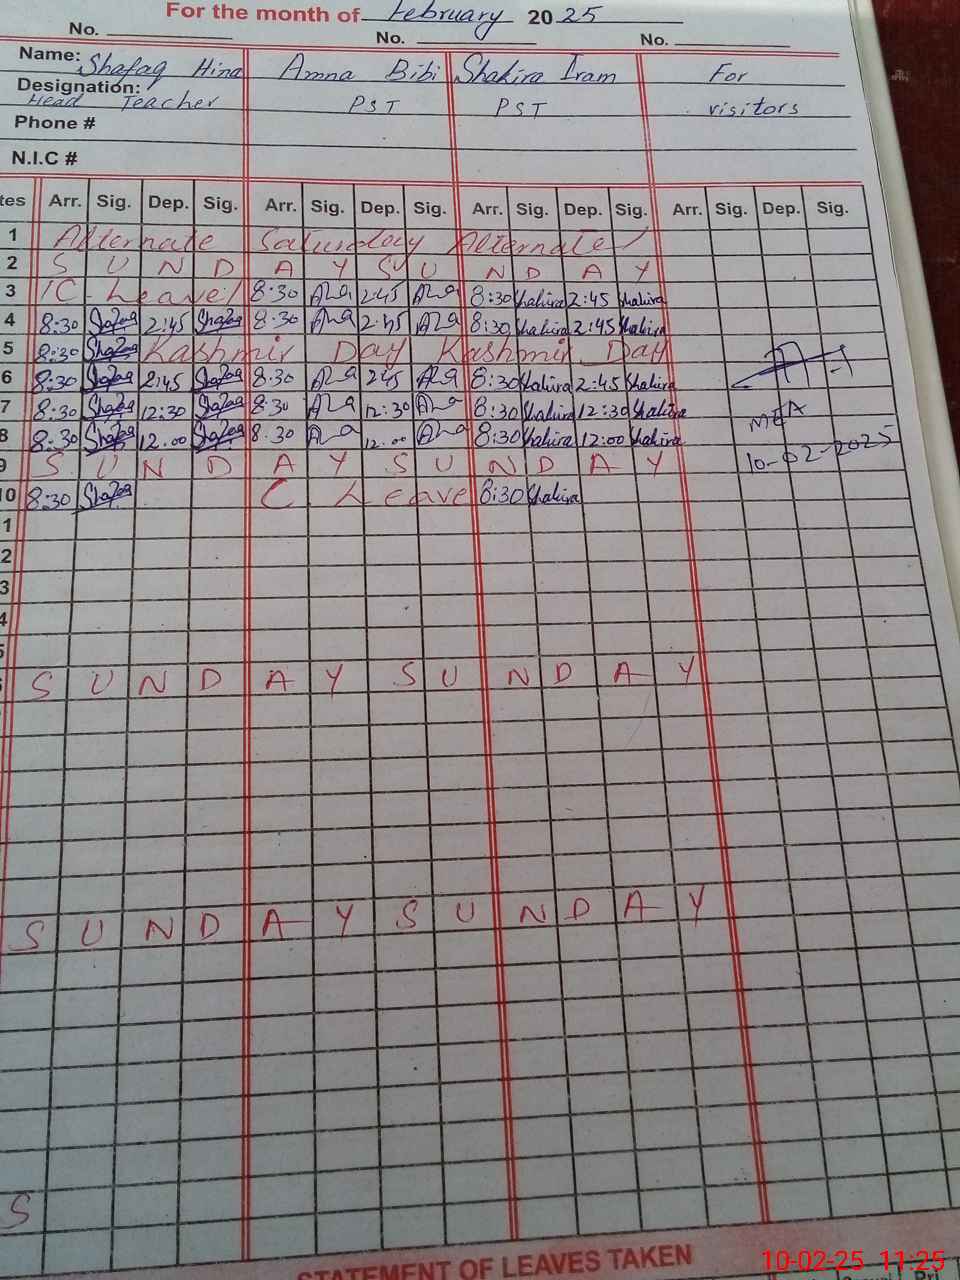 For the month of February 2025
No. No. No.
Name: Shafaq Hina Amna Bibi Shakira Iram For
Designation: Head Teacher PST PST visitors
Phone #
N.I.C #
tes Arr. Sig. Dep. Sig. Arr. Sig. Dep. Sig. Arr. Sig. Dep. Sig. Arr. Sig. Dep. Sig.
1 Alternate Saturday Alternate
2 S U N D A Y S U N D A Y
3 1 C. Leave 8:30 2:45 8:30 Shakira 2:45 Shakira
4 8:30 Shafaq 2:45 Shafaq 8:30 2:45 8:30 Shakira 2:45 Shakira
5 8:30 Shafaq Kashmir Day Kashmir Day
6 8:30 Shafaq 2:45 Shafaq 8:30 2:45 8:30 Shakira 2:45 Shakira
7 8:30 Shafaq 12:30 Shafaq 8:30 12:30 8:30 Shakira 12:30 Shakira
8 8:30 Shafaq 12.00 Shafaq 8.30 12.00 8:30 Shakira 12:00 Shakira
MEA
9 S U N D A Y S U N D A Y
10-02-2025
10 8:30 Shafaq C Leave 8:30 Shakira
1
2
3
4
5
S U N D A Y S U N D A Y
S U N D A Y S U N D A Y
S
STATEMENT OF LEAVES TAKEN
10-02-25 11:25